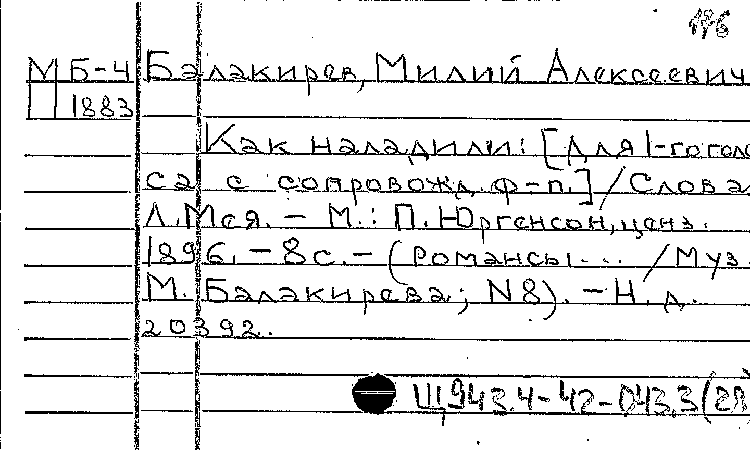 176
М Б-4 Балакирев, Милий Алексеевич
1883
Как наладили: [Для 1-го голо
са с сопровожд. ф-п.] / Слова
Л. Мея. – М.: П. Юргенсон, ценз.
1896. – 8 с. – (Романсы... / Муз.
М. Балакирева; N8). – Н. д.
20392.
Щ943.4-42-043.3(2Я)